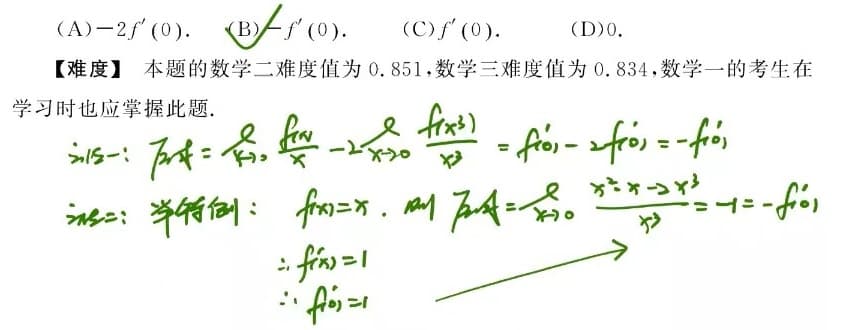 (A)-2f′(0). (B)-f′(0). (C)f′(0). (D)0.
【难度】 本题的数学二难度值为 0.851,数学三难度值为 0.834,数学一的考生在
学习时也应掌握此题.
法一: 原式 = lim x→0 f(x)/x - 2 lim x→0 f(x³)/x³ = f′(0) - 2f′(0) = -f′(0)
法二: 举特例: f(x)=x. 则 原式 = lim x→0 (x²·x-2x³)/x³ = -1 = -f′(0)
∴ f′(x)=1
∴ f′(0)=1